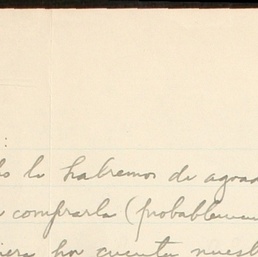 :
lo habremos de agrad
comprarla (probablemen
por cuenta nuest